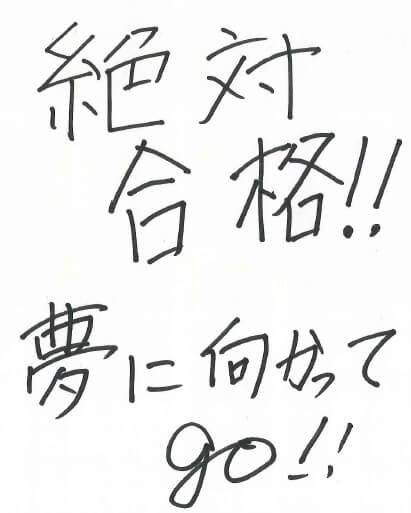 絶対
合格!!
夢に向かって
go!!